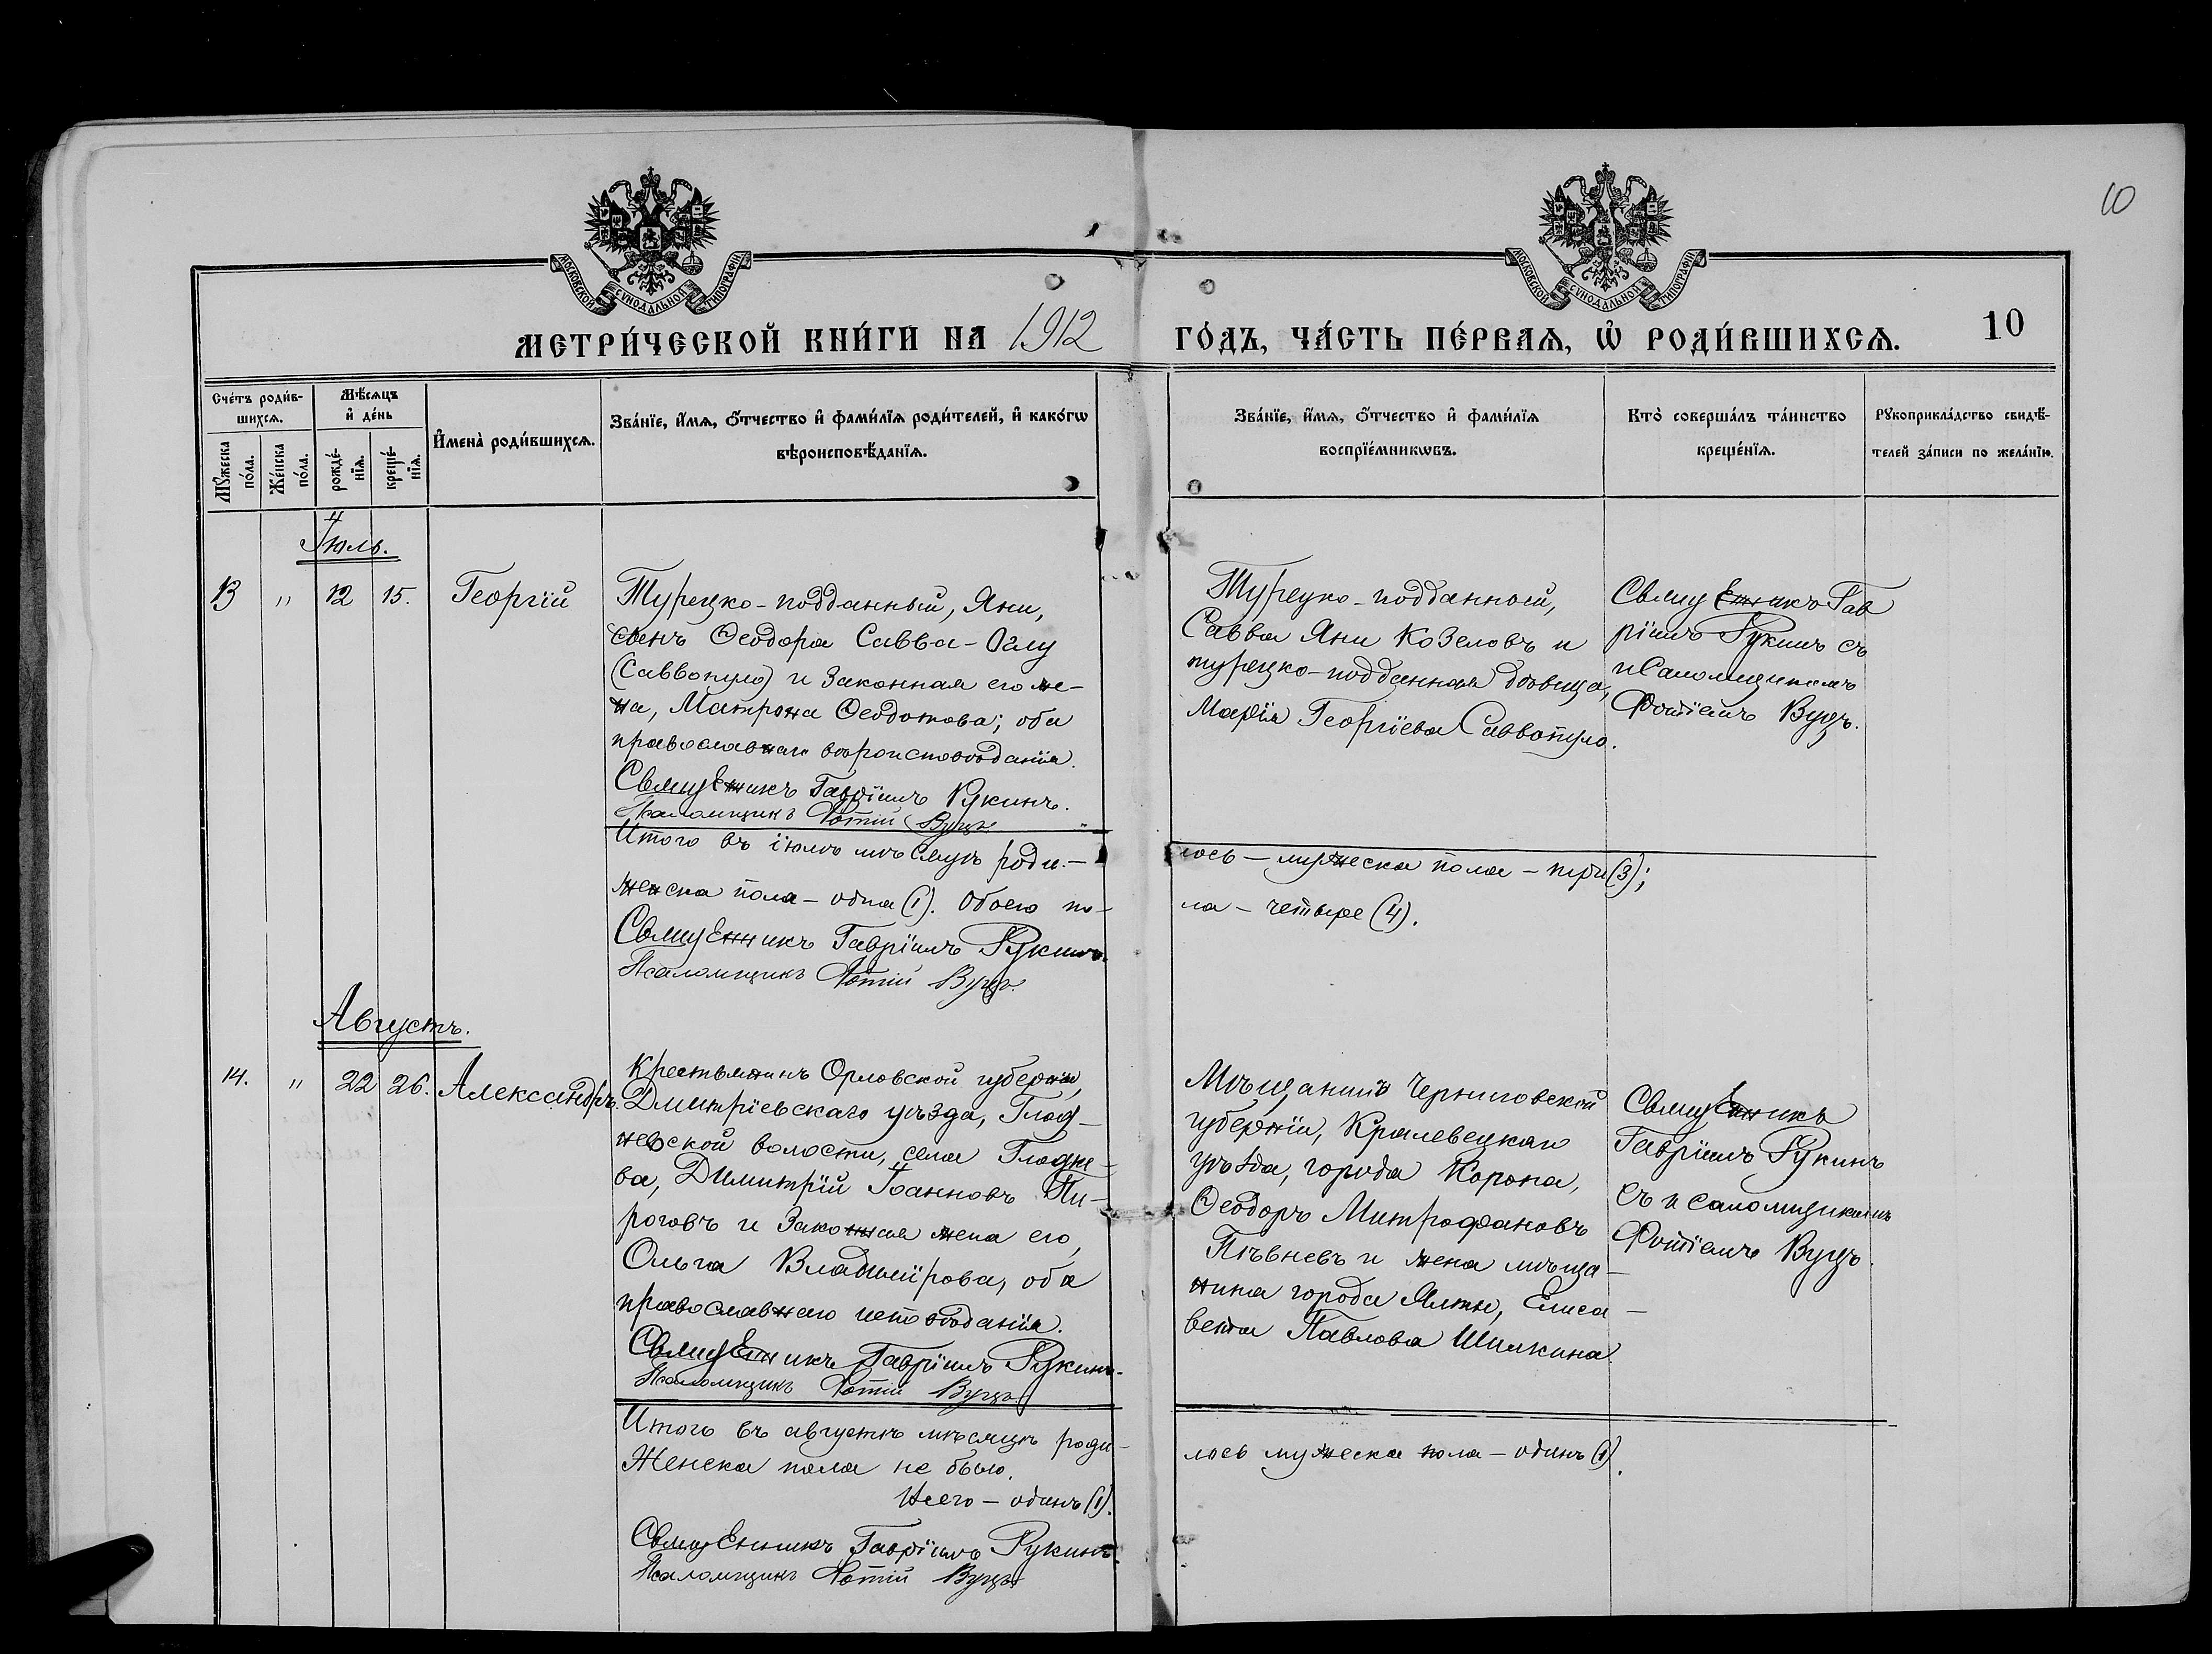 10
МОСКОВСКОЙ СѴНОДАЛЬНОЙ ТИПОГРАФІИ
МОСКОВСКОЙ СѴНОДАЛЬНОЙ ТИПОГРАФІИ
МЕТРИ́ЧЕСКОЙ КНИ́ГИ НА 1912
ГО́ДЪ, ЧА́СТЬ ПЕ́РВАѦ, Ѽ РОДИ́ВШИХСѦ.
10
Сче́тъ роди́в-
шихсѧ.
Мѣ́сѧцъ
и҆ де́нь
Мꙋ́жеска
по́ла.
Же́нска
по́ла.
рожде́-
нїѧ.
креще́-
нїѧ.
И҆мена̀ роди́вшихсѧ.
Зва́нїе, и҆́мѧ, ѻ҆́тчество и҆ фами́лїѧ роди́телей, и҆ како́гѡ
вѣроисповѣ́данїѧ.
Зва́нїе, и҆́мѧ, ѻ҆́тчество и҆ фами́лїѧ
воспрїе́мникѡвъ.
Кто̀ соверша́лъ та́инство
креще́нїѧ.
Рꙋкоприкла́дство свидѣ́-
телей за́писи по жела́нїю.
Іюль.
13 " 12 15. Георгій
Турецко-подданный, Яни,
сынъ Ѳеодора Савва-Оглу
(Саввопуло) и законная его же-
на, Матрона Ѳеодотова; оба
православнаго вѣроисповѣданія.
СвящЕнникъ Гавріилъ Рукинъ.
Псаломщикъ Фотій Вуцъ
Турецко-подданный,
Савва Яни Козеловъ и
турецко-подданная дѣвица,
Марія Георгіева Саввопуло.
СвящЕнникъ Гав
ріилъ Рукинъ съ
псаломщикомъ
Фотіемъ Вуцъ.
Итого въ іюлѣ мѣсяцѣ роди-
лось – мужеска пола – три (3);
женска пола – одна (1). Обоего по-
ла – четыре (4).
СвящЕнникъ Гавріилъ Рукинъ.
Псаломщикъ Фотій Вуцъ.
Августъ.
14. " 22 26. Александръ.
Крестьянинъ Орловской губерніи,
Дмитріевскаго уѣзда, Глод-
невской волости, села Глодне-
ва, Димитрій Іоанновъ Пи-
роговъ и законная жена его,
Ольга Владимірова, оба
православнаго исповѣданія.
СвящЕнникъ Гавріилъ Рукинъ.
Псаломщикъ Фотій Вуцъ.
Мѣщанинъ Черниговской
губерніи, Кролевецкаго
уѣзда, города Коропа,
Ѳеодоръ Митрофановъ
Пѣвневъ и жена мѣща-
нина города Ялты, Елиса-
вета Павлова Шилкина.
СвящЕнникъ
Гавріилъ Рукинъ
съ псаломщикомъ
Фотіемъ Вуцъ.
Итого въ августѣ мѣсяцѣ роди-
лось мужеска пола – одинъ (1).
Женска пола не было.
Всего – одинъ (1).
СвящЕнникъ Гавріилъ Рукинъ.
Псаломщикъ Фотій Вуцъ